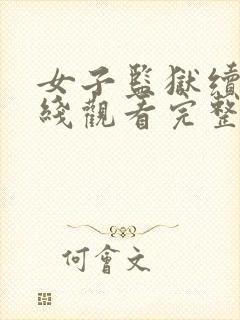 女子監獄續
綫觀看完整
何會文